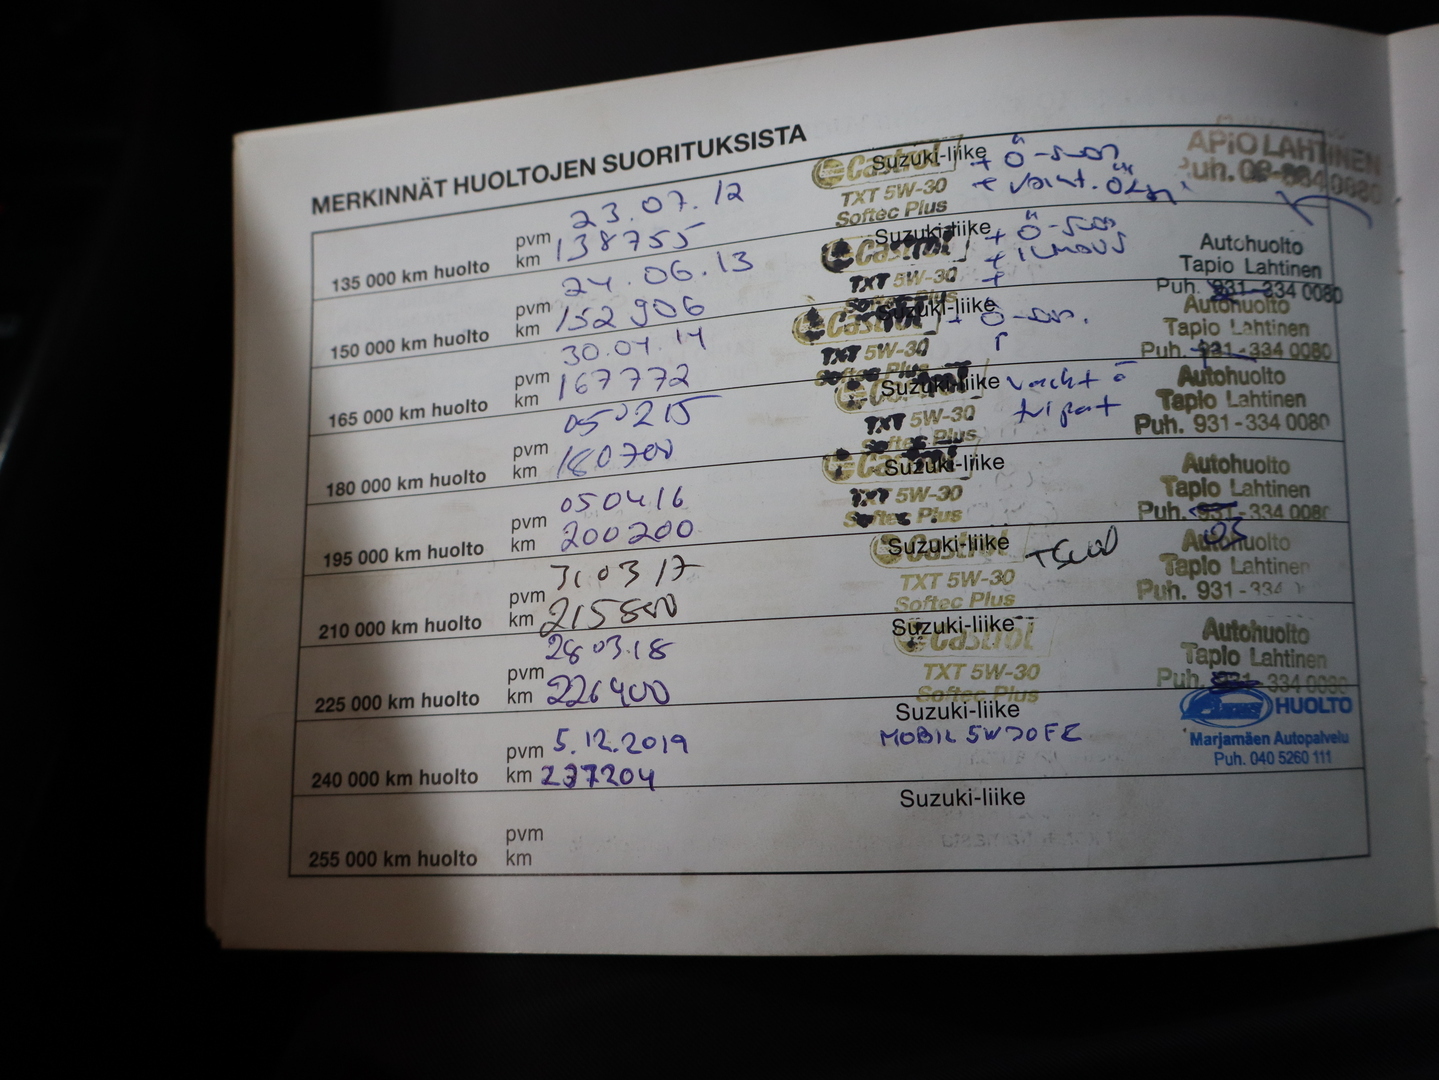 MERKINNÄT HUOLTOJEN SUORITUKSISTA
135 000 km huolto pvm 23.07.12 km 138755 Castrol Suzuki-liike TXT 5W-30 Softec Plus + Ö-suon + APIO LAHTINEN Puh.
150 000 km huolto pvm 24.06.13 km 152906 Castrol Suzuki-liike TXT 5W-30 Softec Plus + Ö-suon + ilmaus + Autohuolto Tapio Lahtinen Puh. 931-334 0080
165 000 km huolto pvm 30.04.14 km 167772 Castrol Suzuki-liike TXT 5W-30 Softec Plus + Ö-son. Autohuolto Tapio Lahtinen Puh. 931-334 0080
180 000 km huolto pvm 050215 km 180700 Castrol Suzuki-liike TXT 5W-30 Softec Plus Autohuolto Tapio Lahtinen Puh. 931-334 0080
195 000 km huolto pvm 050416 km 200200 Castrol Suzuki-liike TXT 5W-30 Softec Plus Autohuolto Tapio Lahtinen Puh. 931-334 0080 03
210 000 km huolto pvm 31.03 17 km 215800 Castrol Suzuki-liike TXT 5W-30 Softec Plus Autohuolto Tapio Lahtinen Puh. 931-334
225 000 km huolto pvm 28.03.18 km 226400 Castrol Suzuki-liike TXT 5W-30 Softec Plus Autohuolto Tapio Lahtinen Puh. 931-334 0080
240 000 km huolto pvm 5.12.2019 km 237204 Suzuki-liike MOBIL 5W30FE HUOLTO Marjamäen Autopalvelu Puh. 040 5260 111
255 000 km huolto pvm km Suzuki-liike